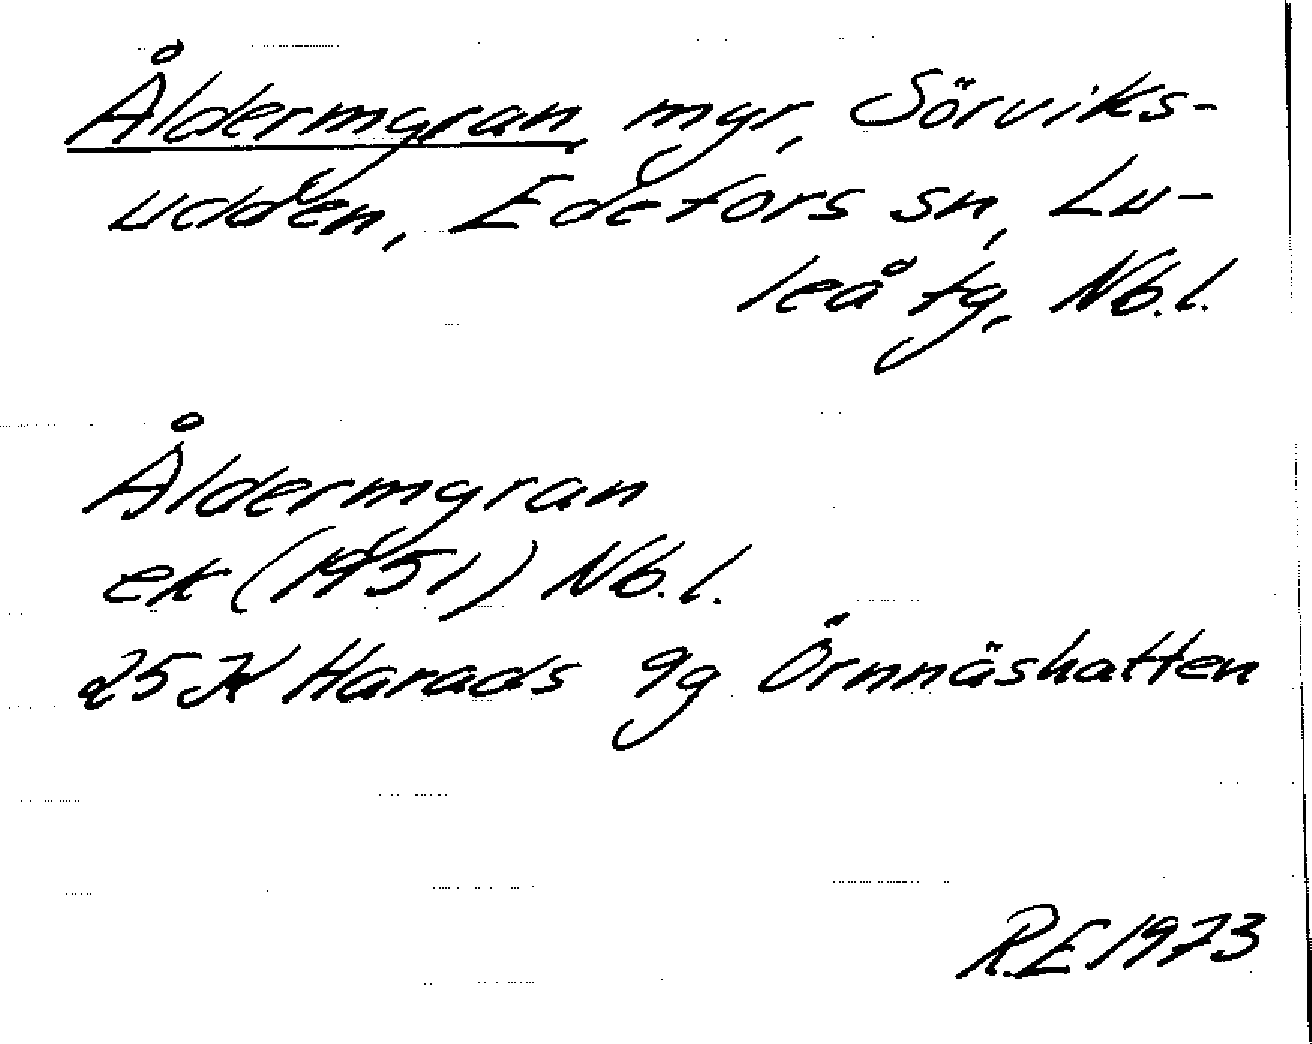 Åldermyran, myr, Sörviks-
udden, Edefors sn, Lu-
leå tg, Nb.l.
Åldermyran
ek (1951) Nb.l.
25 K Harads 9g Örnnäshatten
R.E 1973